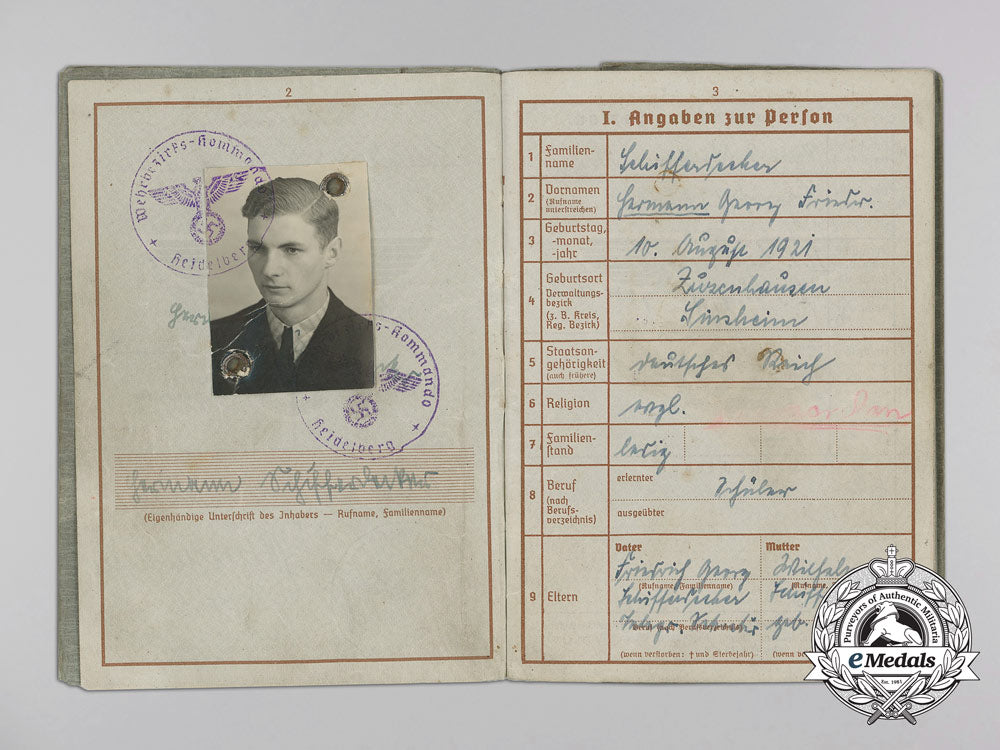 2
Wehrbezirks-Kommando
Heidelberg
Wehrbezirks-Kommando
Heidelberg
Hermann Schifferdecker
(Eigenhändige Unterschrift des Inhabers — Rufname, Familienname)
3
I. Angaben zur Person
1 Familien-
name
Schifferdecker
2 Vornamen
(Rufname
unterstreichen)
Hermann Georg Friedr.
3 Geburtstag,
-monat,
-jahr
10. August 1921
4 Geburtsort
Verwaltungs-
bezirk
(z. B. Kreis,
Reg. Bezirk)
Zuzenhausen
Sinsheim
5 Staatsan-
gehörigkeit
(auch frühere)
deutsches Reich
6 Religion
evgl.
7 Familien-
stand
ledig
8 Beruf
(nach
Berufs-
verzeichnis)
erlernter
Schüler
ausgeübter
9 Eltern
Vater
Friedrich Georg
(Rufname, Familienname)
Schifferdecker
(wenn verstorben: † und Sterbejahr)
Mutter
geb.
(wenn
Purveyors of Authentic Militaria
eMedals
Est. 1981